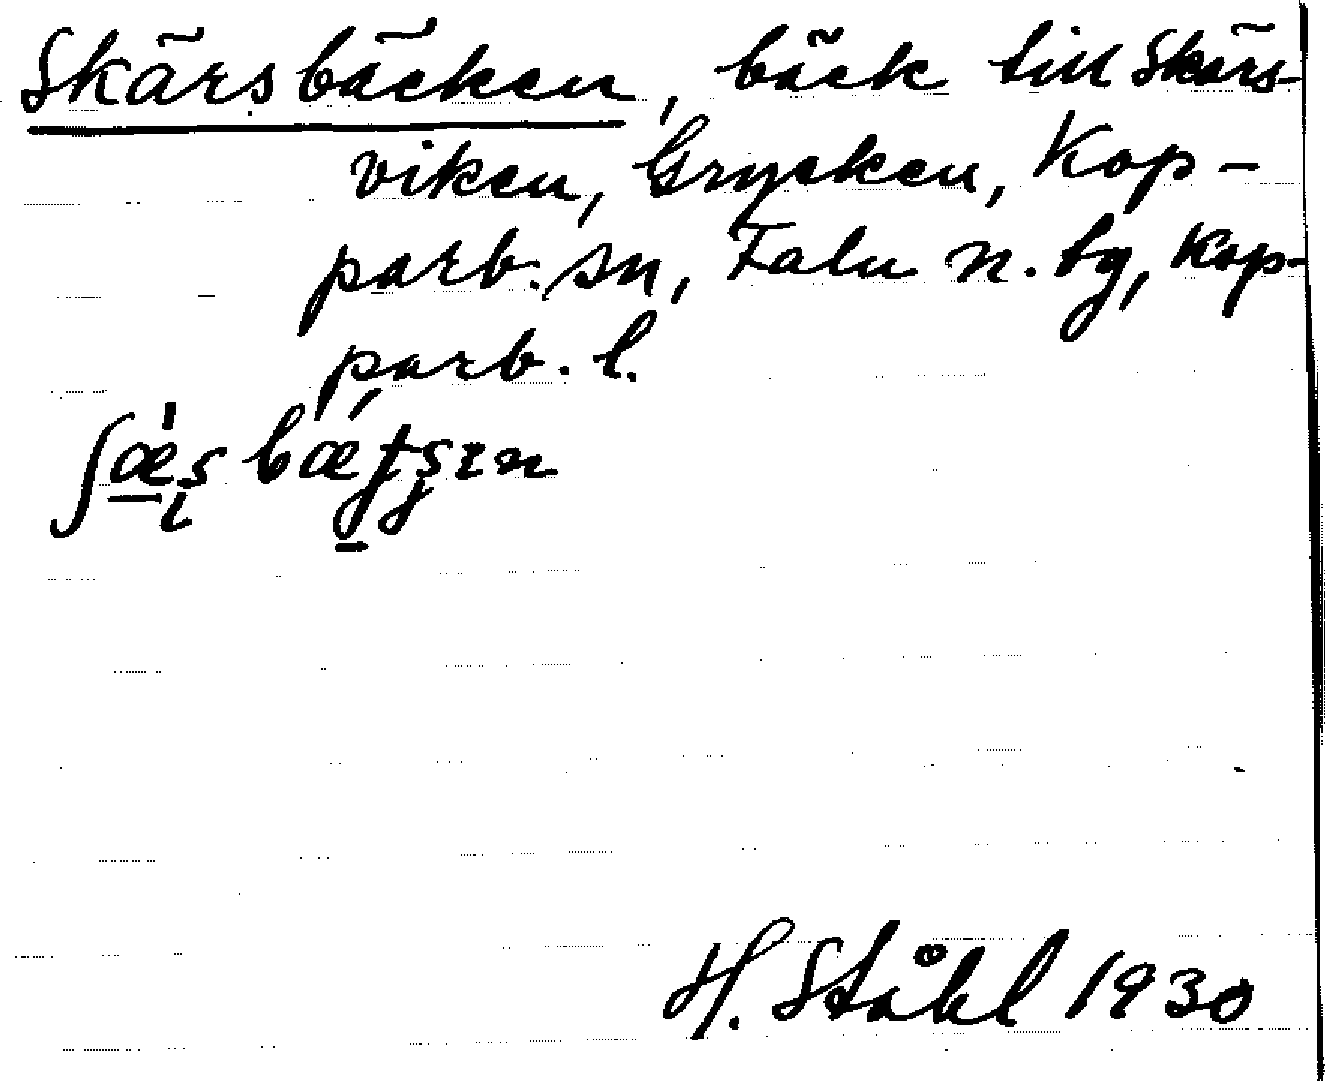 Skärsbäcken, bäck till Skärs-
viken, Grycken, Kop-
parb. sn, Falu n. tg, Kop-
parb. l.
H. Ståhl 1930